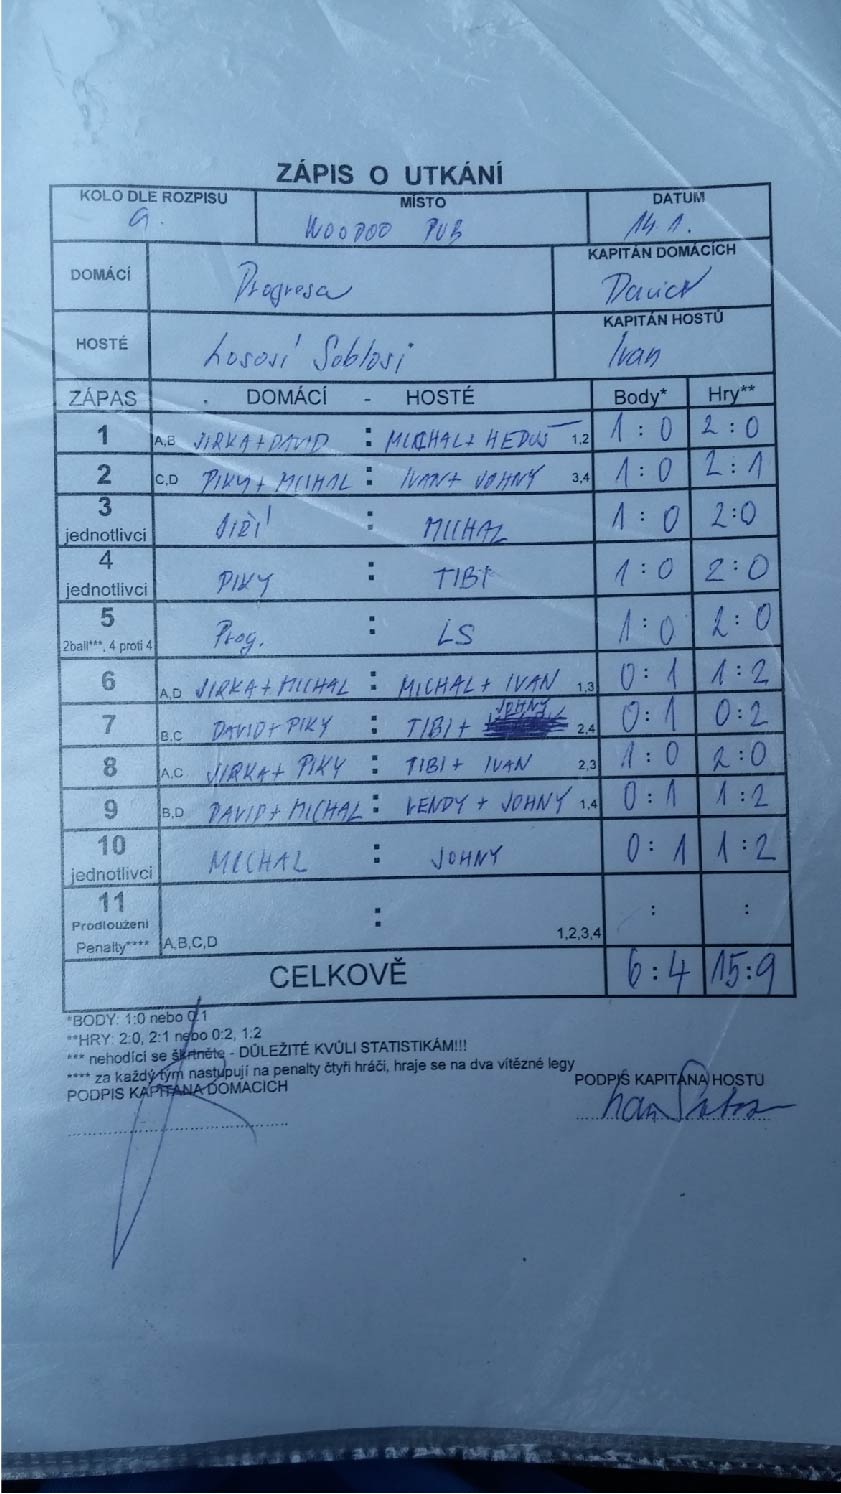 ZÁPIS O UTKÁNÍ
KOLO DLE ROZPISU MÍSTO DATUM
9. WOODOO PUB 14.1.
DOMÁCÍ Progresa KAPITÁN DOMÁCÍCH David
HOSTÉ Lososí Soblosi KAPITÁN HOSTŮ Ivan
ZÁPAS . DOMÁCÍ - HOSTÉ Body* Hry**
1 A,B JIRKA+DAVID : MICHAL+ 1,2 1:0 2:0
2 C,D PIKY+MICHAL : IVAN+ JOHNY 3,4 1:0 2:1
3 jednotlivci JIŘÍ : MICHAL 1:0 2:0
4 jednotlivci PIKY : TIBI 1:0 2:0
5 2ball***, 4 proti 4 Prog. : LS 1:0 2:0
6 A,D JIRKA+MICHAL : MICHAL+ IVAN 1,3 0:1 1:2
7 B,C DAVID+PIKY : TIBI+ JOHNY 2,4 0:1 0:2
8 A,C JIRKA+ PIKY : TIBI+ IVAN 2,3 1:0 2:0
9 B,D DAVID+MICHAL : VENDY + JOHNY 1,4 0:1 1:2
10 jednotlivci MICHAL : JOHNY 0:1 1:2
11 Prodloužení Penalty**** A,B,C,D : 1,2,3,4 : :
CELKOVĚ 6:4 15:9
*BODY: 1:0 nebo 0:1
**HRY: 2:0, 2:1 nebo 0:2, 1:2
*** nehodící se škrtněte - DŮLEŽITÉ KVŮLI STATISTIKÁM!!!
**** za každý tým nastupují na penalty čtyři hráči, hraje se na dva vítězné legy
PODPIS KAPITÁNA DOMÁCÍCH PODPIS KAPITÁNA HOSTŮ
Ivan